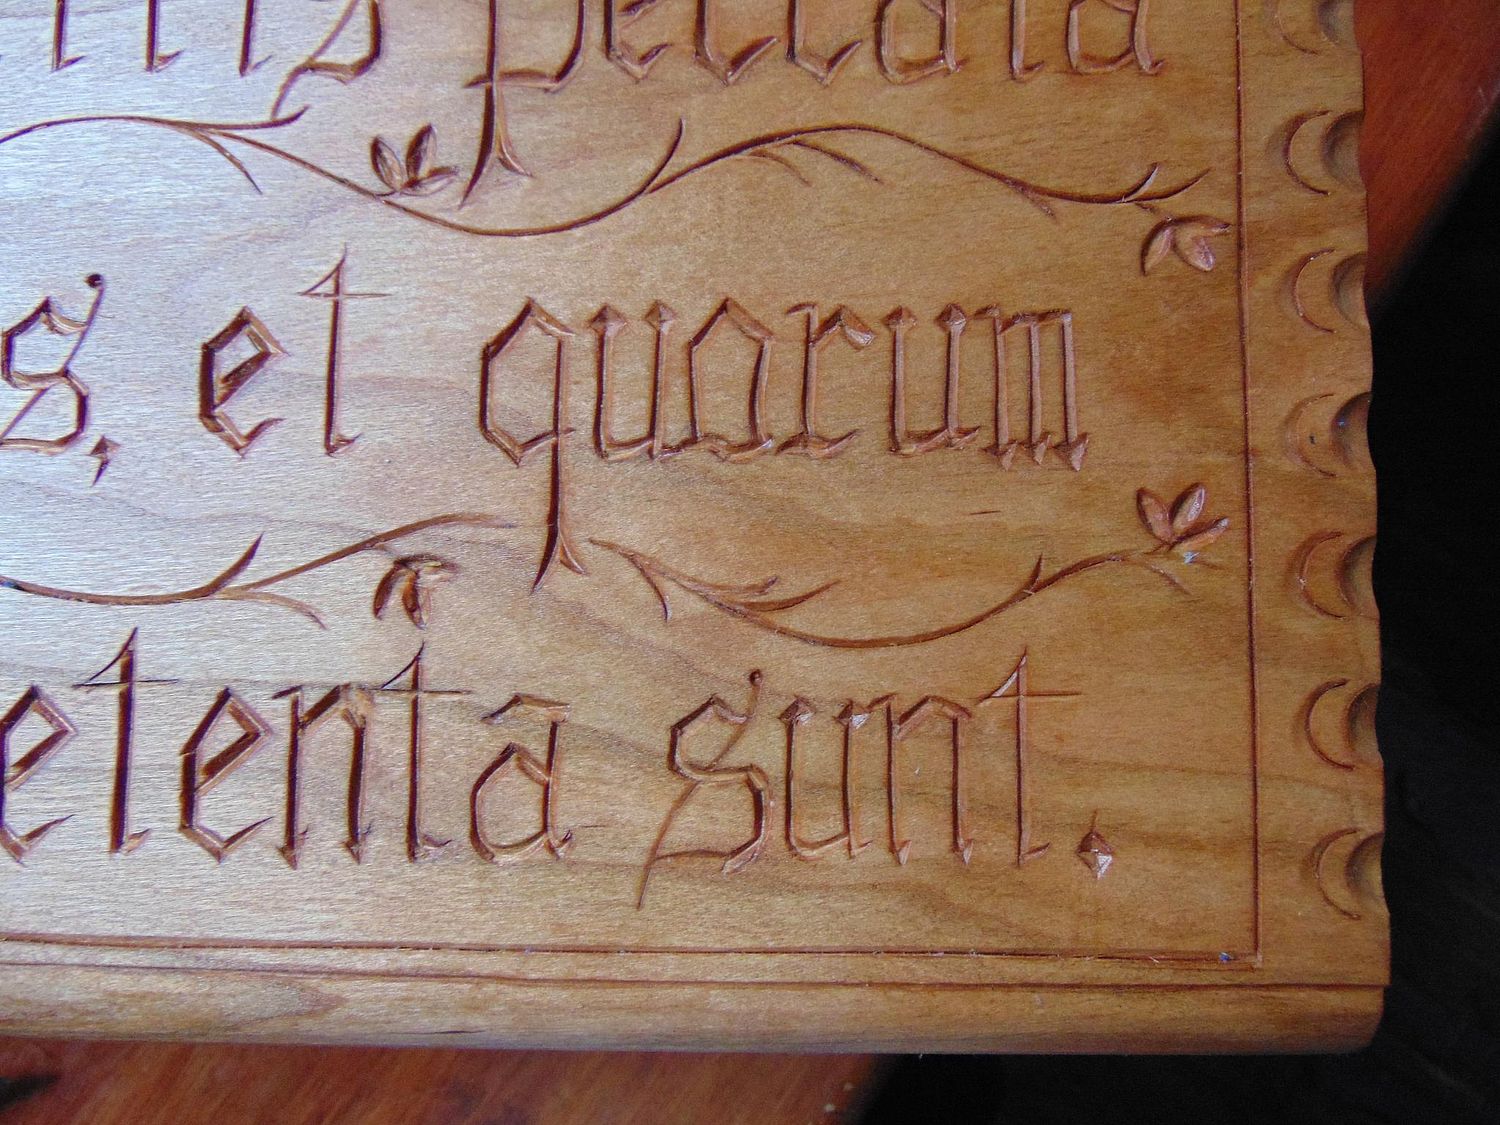 ritis peccata
s, et quorum
etenta sunt.